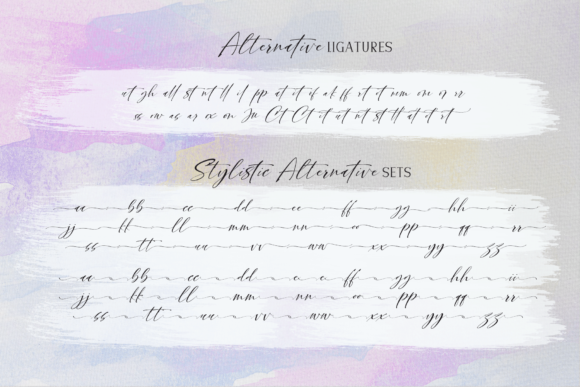 Alternative LIGATURES
at gh all st nt tl il pp at it if ok ff rt it mm om rr
ss ow as ar ex on In Ct Ct it at nt st tt at it rt
Stylistic Alternative SETS
aa bb cc dd ee ff gg hh ii
jj kk ll mm nn oo pp qq rr
ss tt uu vv ww xx yy zz
aa bb cc dd ff gg hh ii
jj kk ll mm nn oo pp qq rr
ss tt uu vv ww xx yy zz